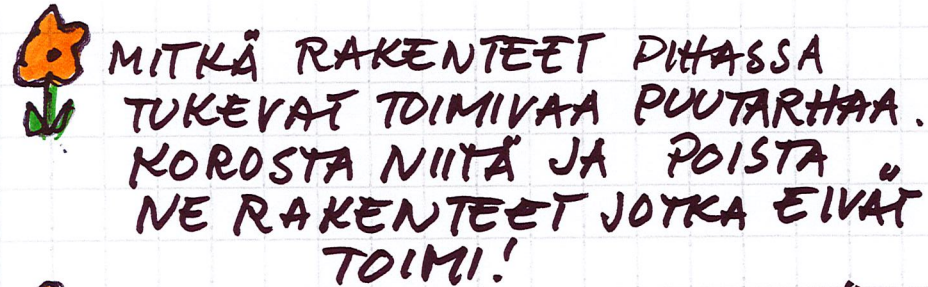 MITKÄ RAKENTEET PIHASSA
TUKEVAT TOIMIVAA PUUTARHAA.
KOROSTA NIITÄ JA POISTA
NE RAKENTEET JOTKA EIVÄT
TOIMI!